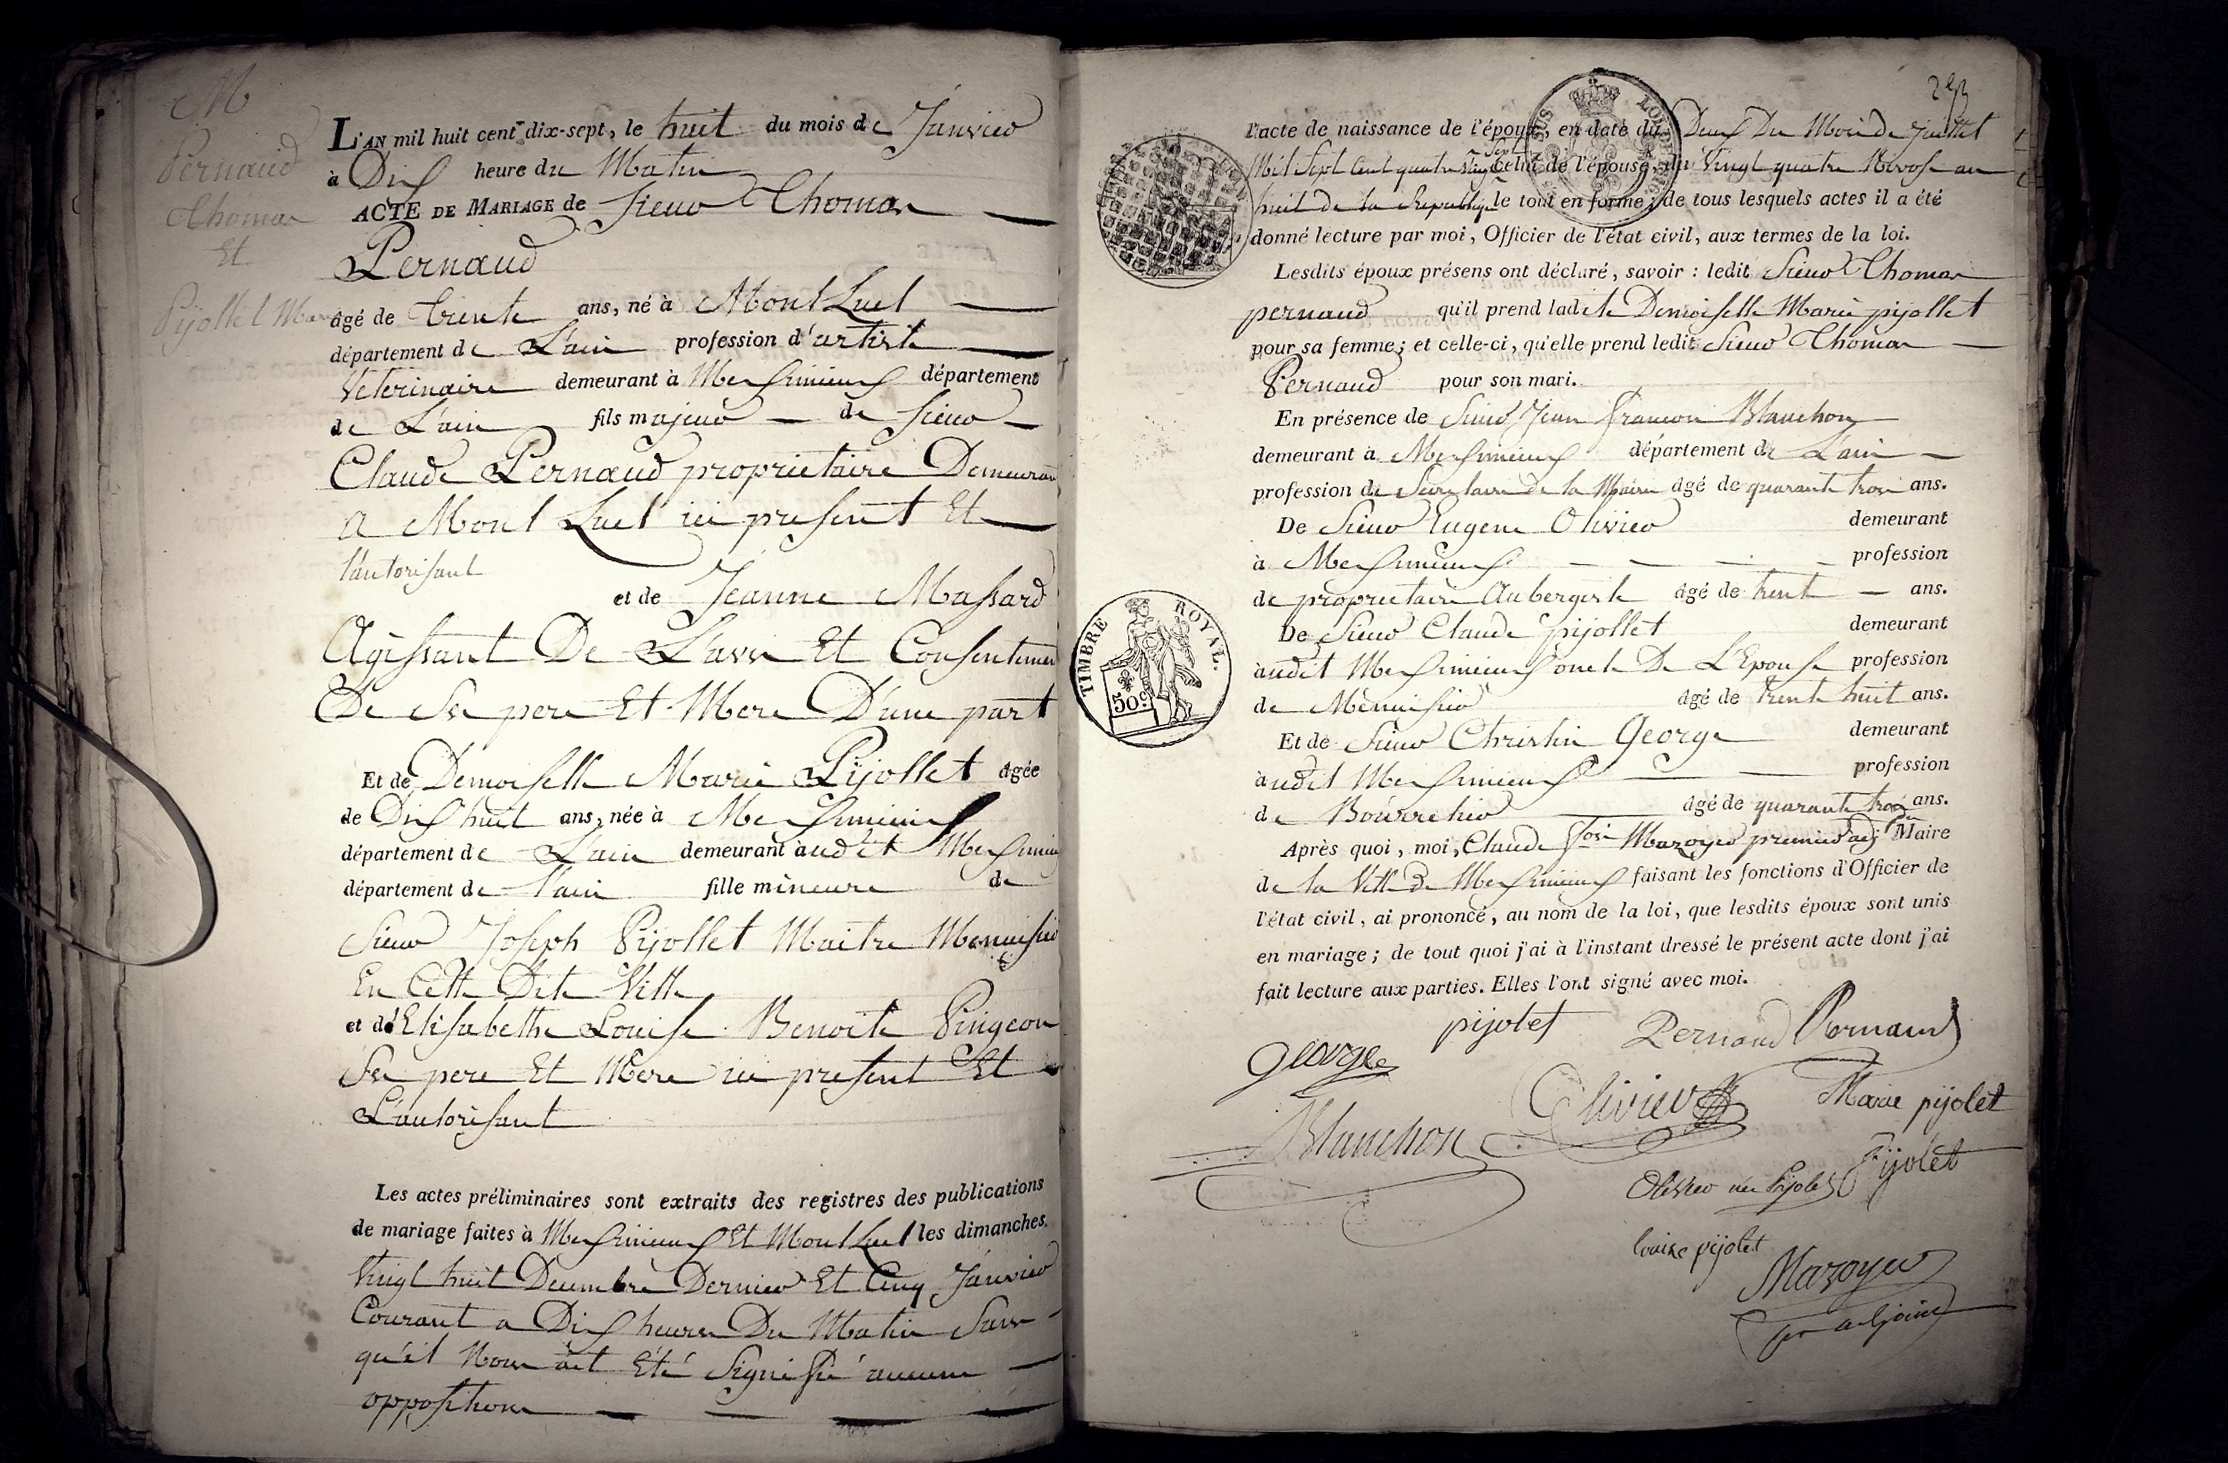 M
Pernaud
Thomas
Et
Pijollet Marie
L'AN mil huit cent dix-sept, le huit du mois de Janvier
à Dix heure du Matin
ACTE DE MARIAGE de Sieur Thomas
Pernaud
âgé de trente ans, né à Mont Luel
département de L'ain profession d'artiste
Veterinaire demeurant à Meximieux département
de L'ain fils majeur de Sieur
Claude Pernaud proprietaire Demeurant
a Mont Luel ici present Et
l'autorisant
et de Jeanne Massard
Agissant De L'avis Et Consentement
De Ses pere Et Mere D'une part
Et de Demoiselle Marie Pijollet âgée
de Dix huit ans, née à Meximieux
département de L'ain demeurant audit Meximieux
département de l'ain fille mineure de
Sieur Joseph Pijollet Maitre Menuisier
En Cette Dite Ville
et d'Elisabethe Louise Benoite Pingeon
Ses pere Et Mere ici present Et
L'autorisant
Les actes préliminaires sont extraits des registres des publications
de mariage faites à Meximieux Et Mont Luel les dimanches
Vingt huit Decembre Dernier Et Cinq Janvier
Courant a Dix heures Du Matin Sans
qu'il Nous ait Été Signifié aucune
opposition
TIMBRE ROYAL.
50c
l'acte de naissance de l'époux, en date du Deux Du Mois de Juillet
Mil Sept Cent quatre vingt Sept Celui de l'épouse, du Vingt quatre Nivose an
huit de la Republique le tout en forme; de tous lesquels actes il a été
donné lecture par moi, Officier de l'état civil, aux termes de la loi.
Lesdits époux présens ont déclaré, savoir : ledit Sieur Thomas
pernaud qu'il prend ladite Demoiselle Marie pijollet
pour sa femme; et celle-ci, qu'elle prend ledit Sieur Thomas
Pernaud pour son mari.
En présence de Sieur Jean francois Blanchon
demeurant à Meximieux département de L'ain
profession de Secretaire de la Mairie âgé de quarante trois ans.
De Sieur Eugene Olivier demeurant
à Meximieux profession
de proprietaire Aubergiste âgé de trente ans.
De Sieur Claude pijollet demeurant
audit Meximieux oncle De L'Epouse profession
de Menuisier âgé de trente huit ans.
Et de Sieur Christin George demeurant
audit Meximieux profession
de Bourrelier âgé de quarante trois ans.
Après quoi, moi, Claude Mazoyer premier adj du Maire
de la Ville de Meximieux faisant les fonctions d'Officier de
l'état civil, ai prononcé, au nom de la loi, que lesdits époux sont unis
en mariage; de tout quoi j'ai à l'instant dressé le présent acte dont j'ai
fait lecture aux parties. Elles l'ont signé avec moi.
pijolet Pernaud Pernaud
George
Olivier Marie pijolet
Blanchon
Olivier née Pijolet Pijolet
louise pijolet
Mazoyer
pr adjoint